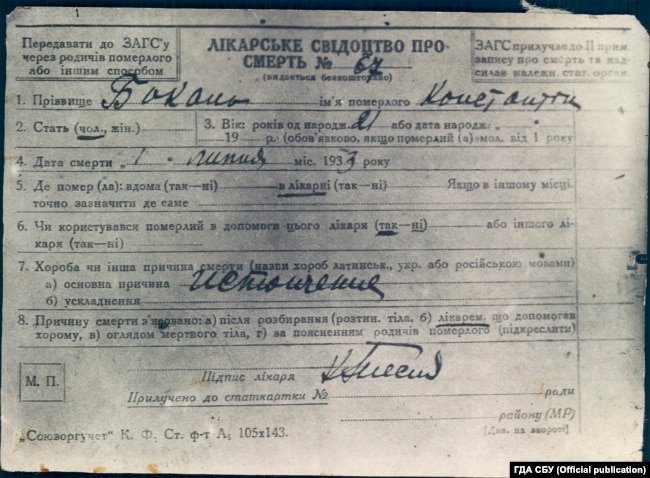 Передавати до ЗАГС'у
через родичів померлого
або іншим способом
ЛІКАРСЬКЕ СВІДОЦТВО ПРО
СМЕРТЬ № 67
(видається безкоштовно)
ЗАГС прилучає до II прим.
запису про смерть та над-
силає належн. стат. орган.
1. Прізвище Бокань ім'я померлого Константин
2. Стать (чол., жін.)
3. Вік: років од народж. 21 або дата народж. „
19 р. (обов'язково, якщо померлий (а) мол. від 1 року
4. Дата смерти „1“ липня міс. 1933 року
5. Де помер (ла): вдома (так—ні) в лікарні (так—ні) Якщо в іншому місці
точно зазначити де саме
6. Чи користувався померлий в допомоги цього лікаря (так—ні) або іншого лі-
каря (так—ні)
7. Хороба чи інша причина смерти (назви хороб латинськ., укр. або російською мовами)
а) основна причина истощение
б) ускладнення
8. Причину смерти з'ясовано: а) після розбирання (розтин. тіла, б) лікарем, що допомагав
хорому, в) оглядом мертвого тіла, г) за поясненням родичів померлого (підкреслити)
М. П.
Підпис лікаря
Прилучено до статкартки № роди
району (МР)
[Див. на звороті]
„Союзоргучет“ К. Ф. Ст. ф-т А₅ 105x143.
ГДА СБУ (Official publication)